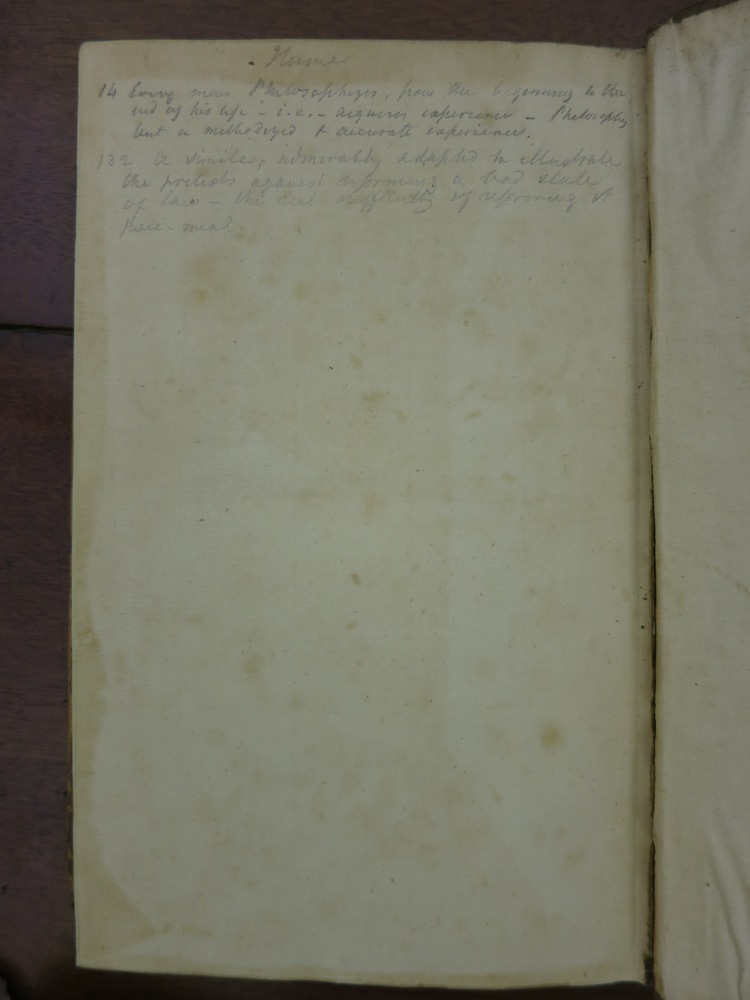 Hume
14 Every man Philosophizes, from the beginning to the
end of his life - i.e. - acquires experience - Philosophy
but a methodized & accurate experience.
132 A simile, admirably adapted to illustrate
the pretexts against reforming a bad state
of law - the real difficulty of reforming it
piece-meal.